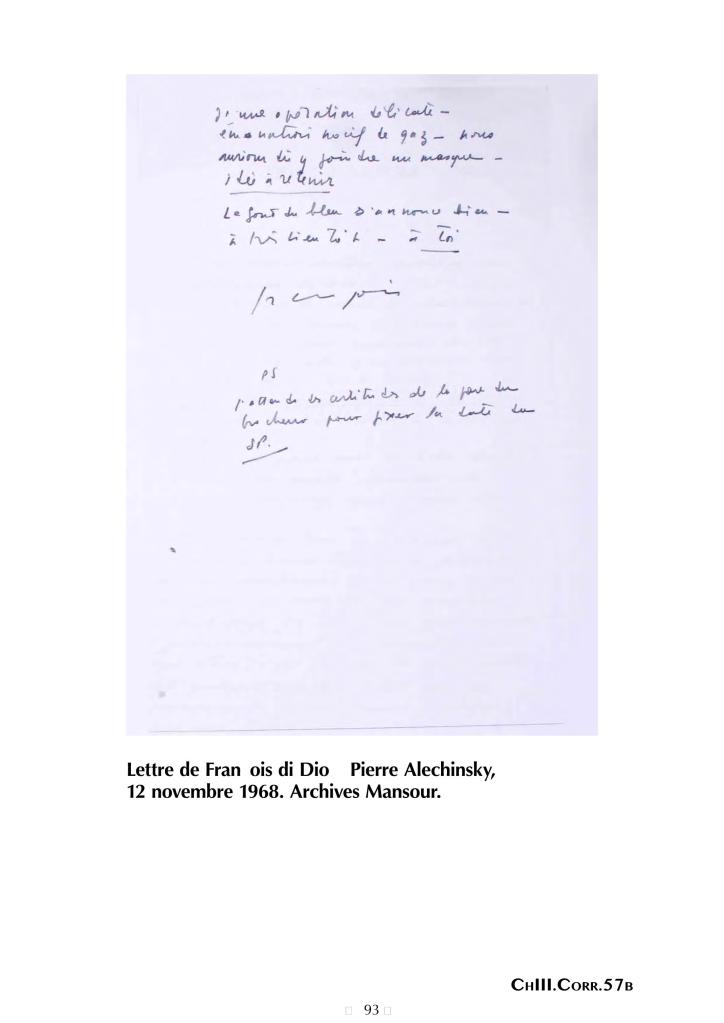 d'une opération délicate –
émanation nocif de gaz – nous
aurions dû y joindre un masque –
idée à retenir
Le fond du bleu s'annonce bien –
à très bientôt – à toi
François
PS
j'attends des certitudes de la part du
brocheur pour fixer la date du
SP.
Lettre de Fran ois di Dio Pierre Alechinsky,
12 novembre 1968. Archives Mansour.
CHIII.CORR.57B
93